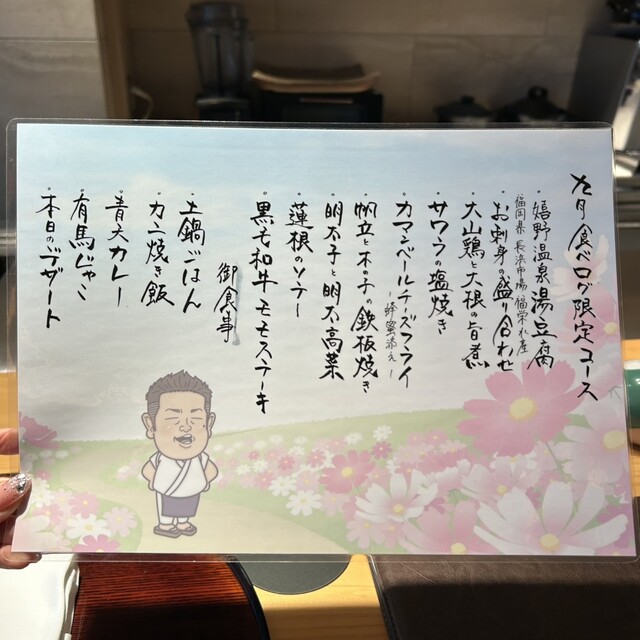 九月 食べログ限定コース
・嬉野温泉湯豆腐
福岡県 長浜市場 福栄水産
・お刺身の盛り合わせ
・大山鶏と大根の旨煮
・サワラの塩焼き
・カマンベールチーズフライ
-蜂蜜添え-
・帆立と木の子の鉄板焼き
・明太子と明太高菜
・蓮根のソテー
・黒毛和牛モモステーキ
御食事
・土鍋ごはん
・カニ焼き飯
・青大カレー
・有馬じゃこ
・本日のデザート